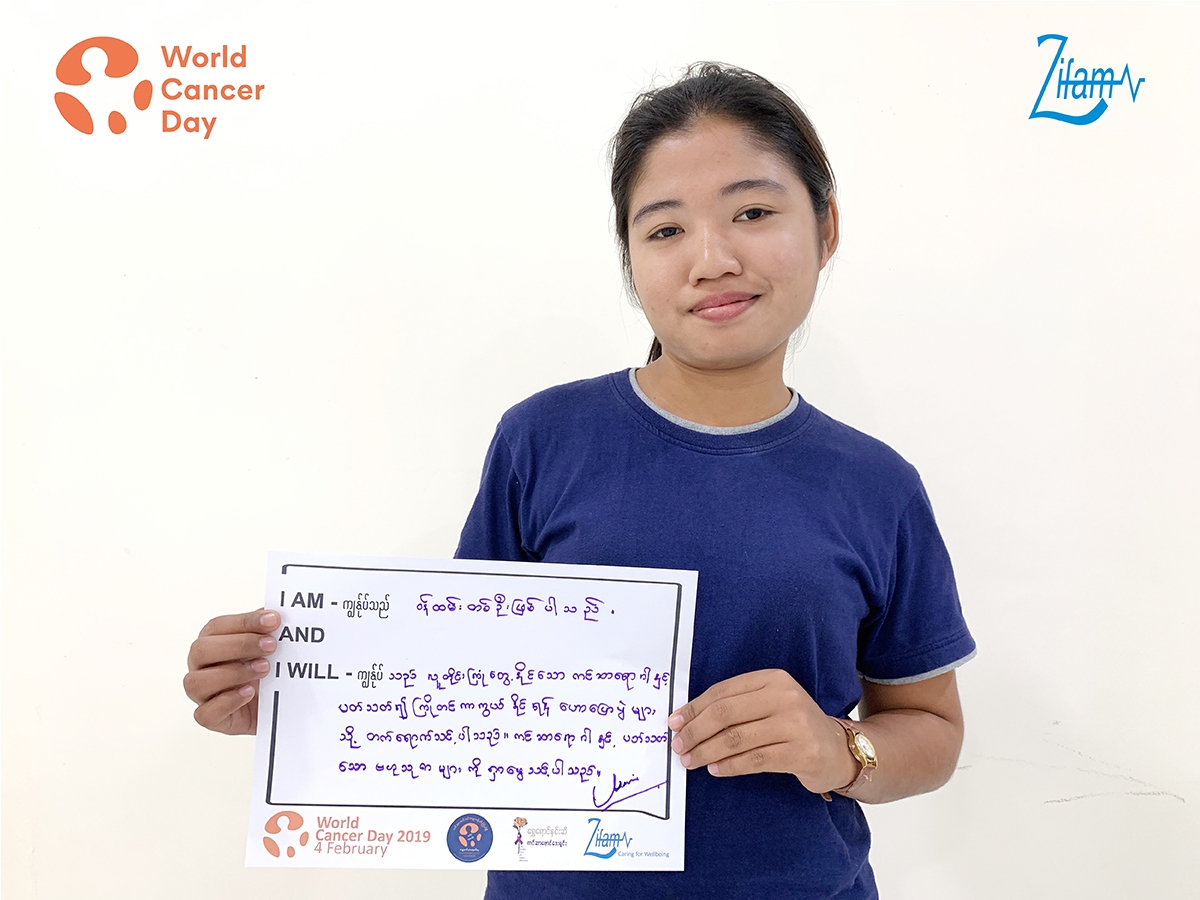 World
Cancer
Day
Zifam
I AM - ကျွန်ုပ်သည် ဝန်ထမ်းတစ်ဦးဖြစ်ပါသည်။
AND
I WILL - ကျွန်ုပ် သည် လူတိုင်းကြုံတွေ့နိုင်သော ကင်ဆာရောဂါနှင့်
ပတ်သတ်၍ ကြိုတင်ကာကွယ်နိုင်ရန် ဟောပြောပွဲများ
သို့ တက်ရောက်သင့်ပါသည်။ ကင်ဆာရောဂါနှင့် ပတ်သတ်
သော ဗဟုသုတများကို ရှာမွေသင့်ပါသည်။
World
Cancer Day 2019
4 February
ရွှေရောင်နှင်းဆီ
Zifam
Caring for Wellbeing